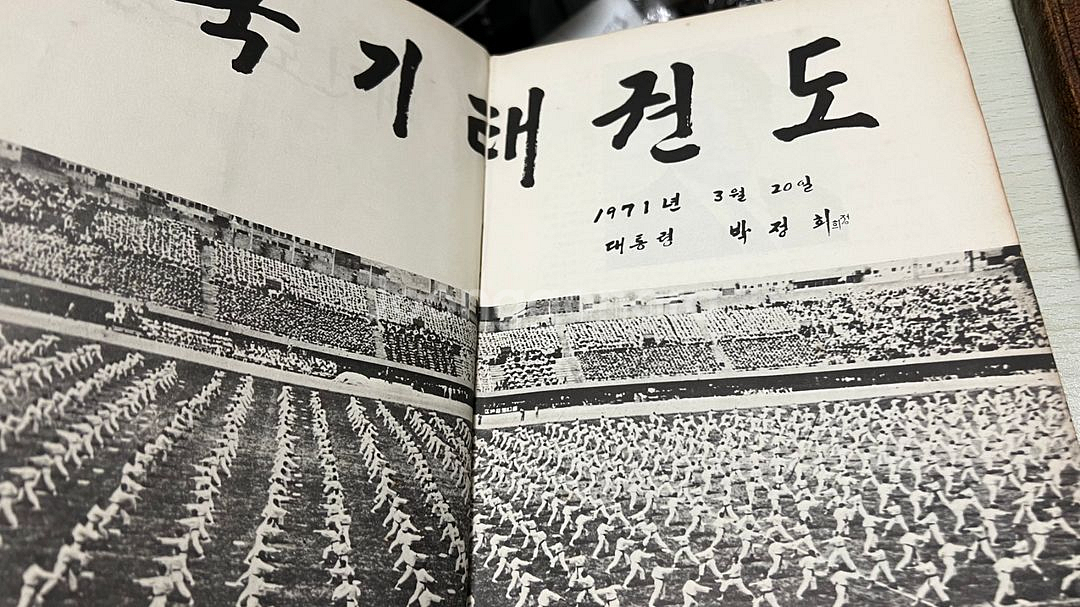 국기 태권도
1971년 3월 20일
대통령 박정희